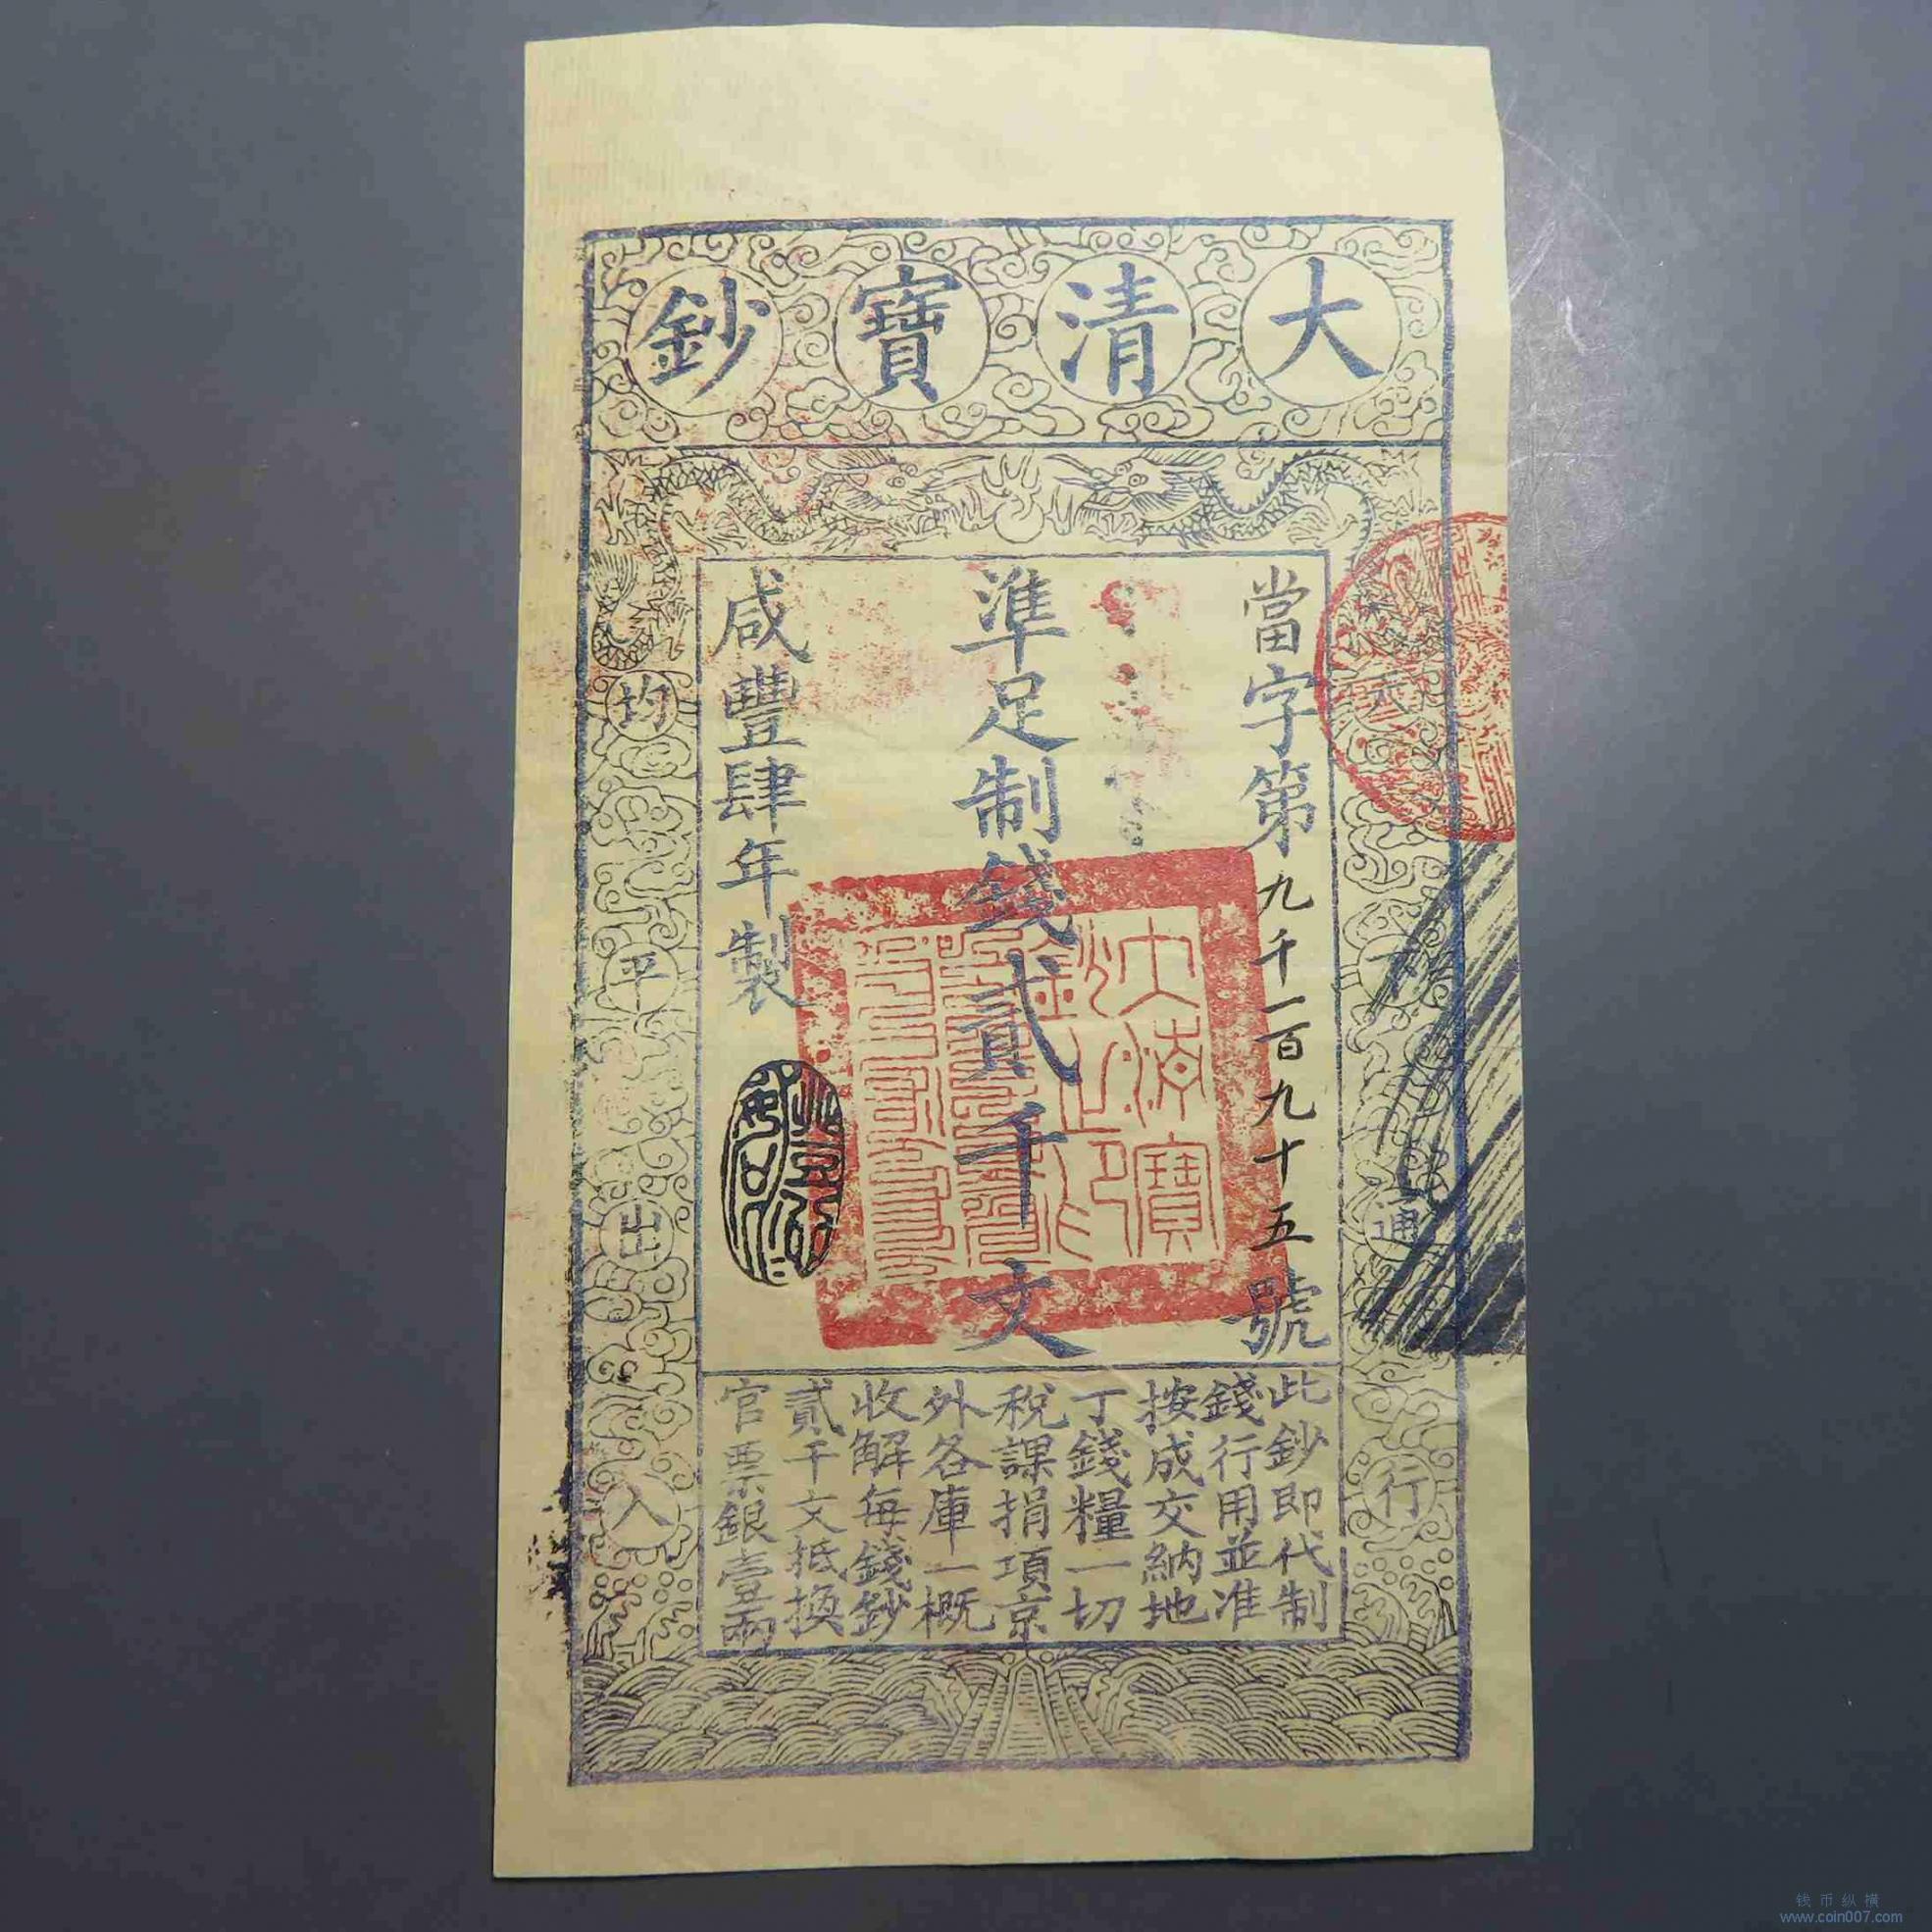 大清寶鈔
天下通行
均平出入
當字第九千一百九十五號
準足制錢貳千文
咸豐肆年製
大清寶鈔之印
此鈔即代制
錢行用並准
按成交納地
丁錢糧一切
稅課捐項京
外各庫一概
收解每錢鈔
貳千文抵換
官票銀壹兩
钱币纵横
www.coin007.com